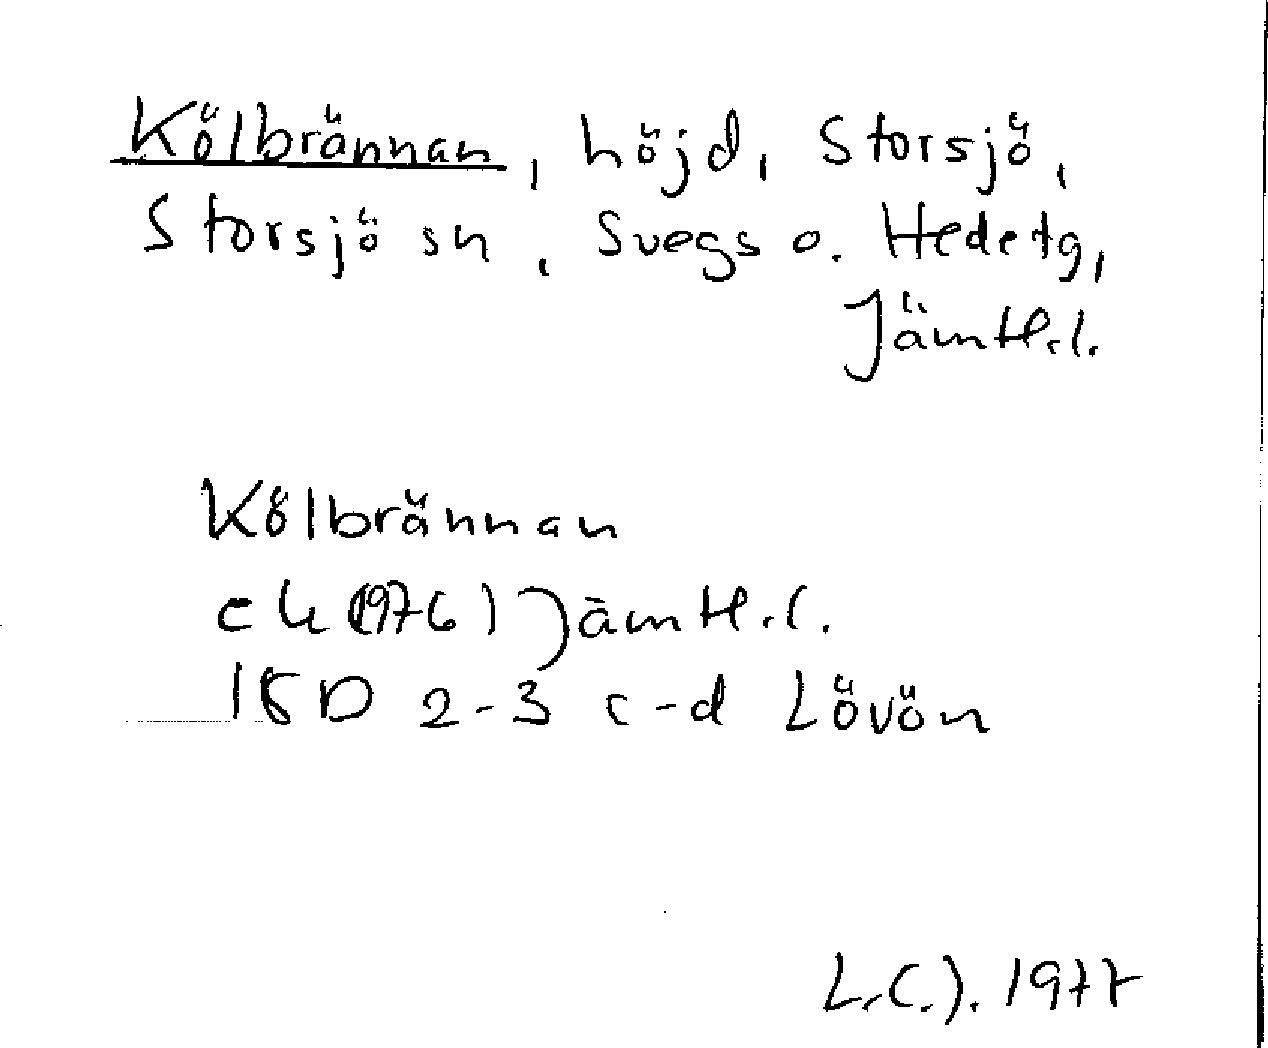 Kölbrännan, höjd, Storsjö,
Storsjö sn, Svegs o. Hede tg,
Jämtl. l.
Kölbrännan
ek (1976) Jämtl. l.
18D 2-3 c-d Lövön
L.C.J. 1977